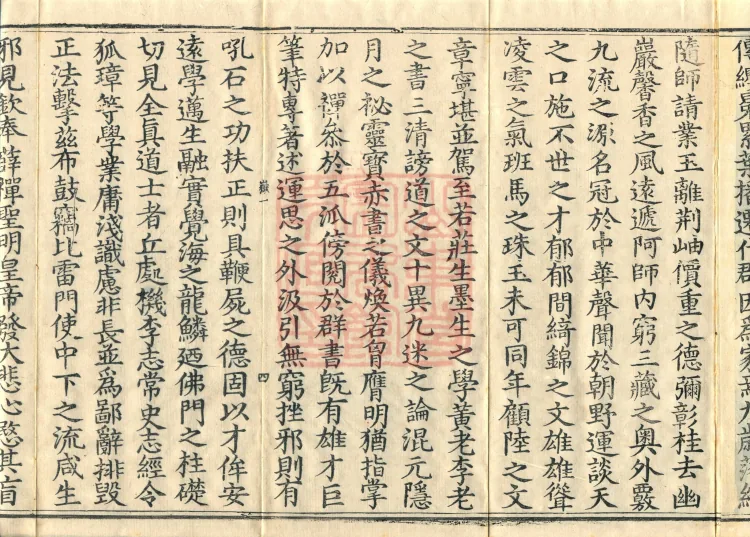 隨師請業玉離荊岫價重之德彌彰桂去幽
巖馨香之風遠遞阿師内窮三藏之奧外覈
九流之源名冠於中華聲聞於朝野運談天
之口施不世之才郁郁間綺錦之文雄雄聳
凌雲之氣班馬之珠玉未可同年顧陸之文
章寧堪並駕至若莊生墨生之學黃老李老
之書三清謗道之文十異九迷之論混元隱
月之祕靈寶赤書之儀煥若胷膺明猶指掌
加以禪叅於五派傍閱於群書旣有雄才巨
筆特專著述運思之外汲引無窮挫邪則有
四
吼石之功扶正則具鞭屍之德固以才侔安
遠學邁生融實覺海之龍鱗廼佛門之柱礎
切見全真道士者丘處機李志常史志經令
狐璋等學業庸淺識慮非長並爲鄙辭排毀
正法擊茲布鼓竊比雷門使中下之流咸生
邪見欽奉薛禪聖明皇帝發大悲心愍其盲